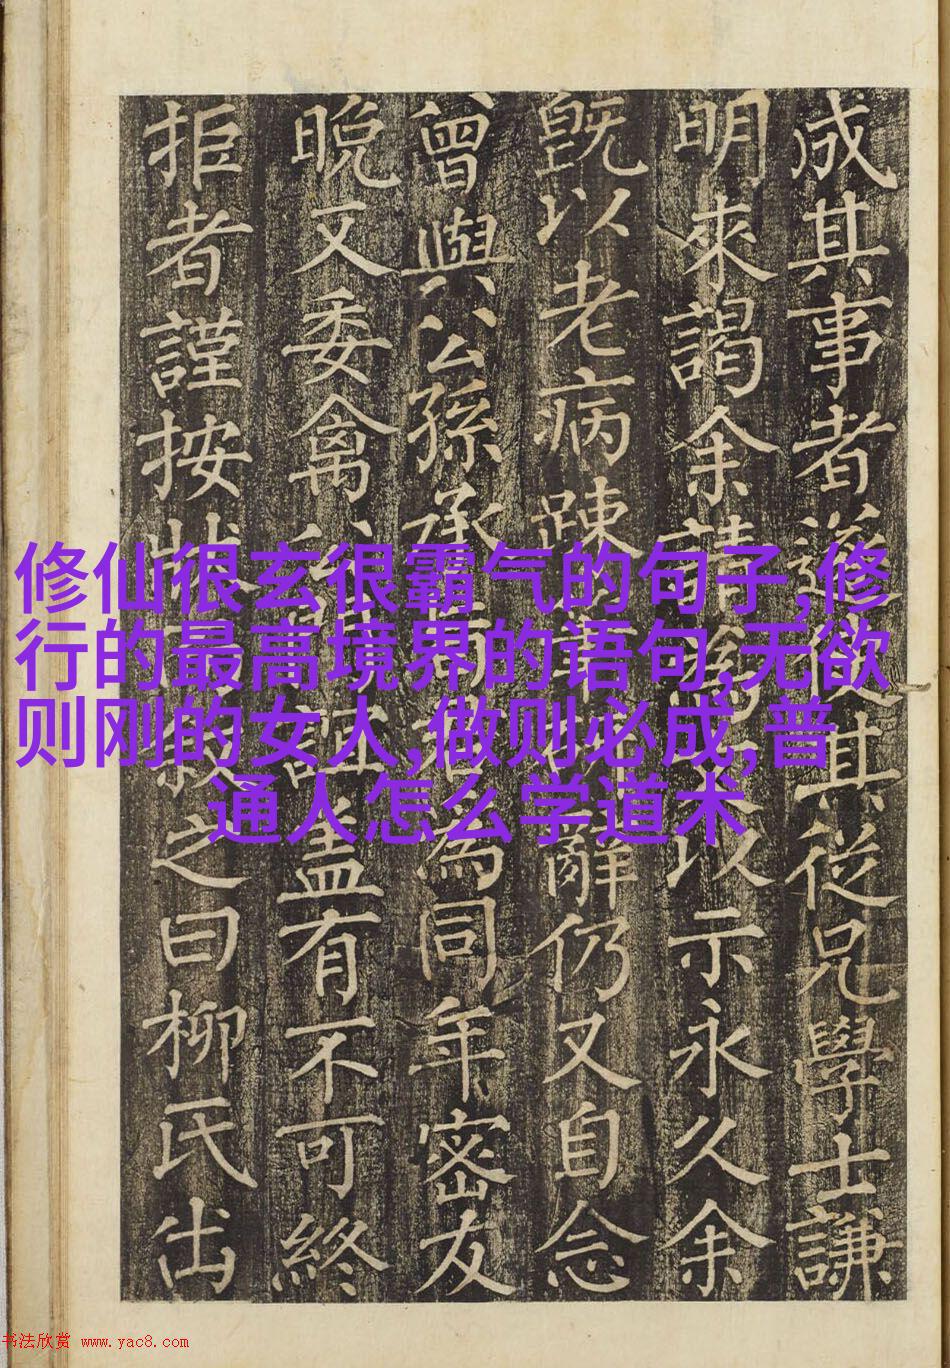 成其事者遂其從兄學士謙
明來謁余請為以示永久余
既以老病踈辭仍又自念
曾與公孫承為同年密友
晚又委禽誼盖有不可終
拒者謹按狀叙之曰柳氏出
修仙很玄很霸气的句子,修
行的最高境界的语句,无欲
则刚的女人,做则必成,普
通人怎么学道术
书法欣赏 www.yac8.com